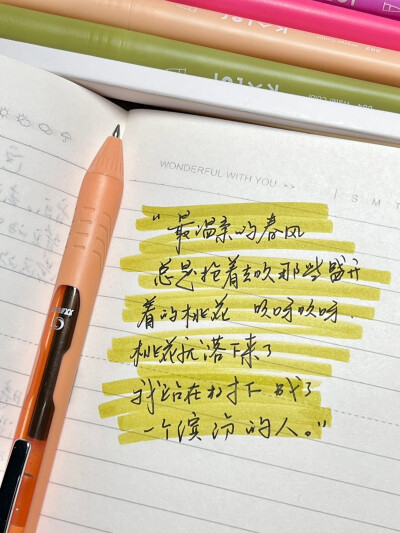 KACO
KACO
WONDERFUL WITH YOU >>
S M T
“最温柔的春风
总是抢着去吹那些盛开
着的桃花 吹呀吹呀
桃花就落下来了
我站在树下 成了
一个缤纷的人。”